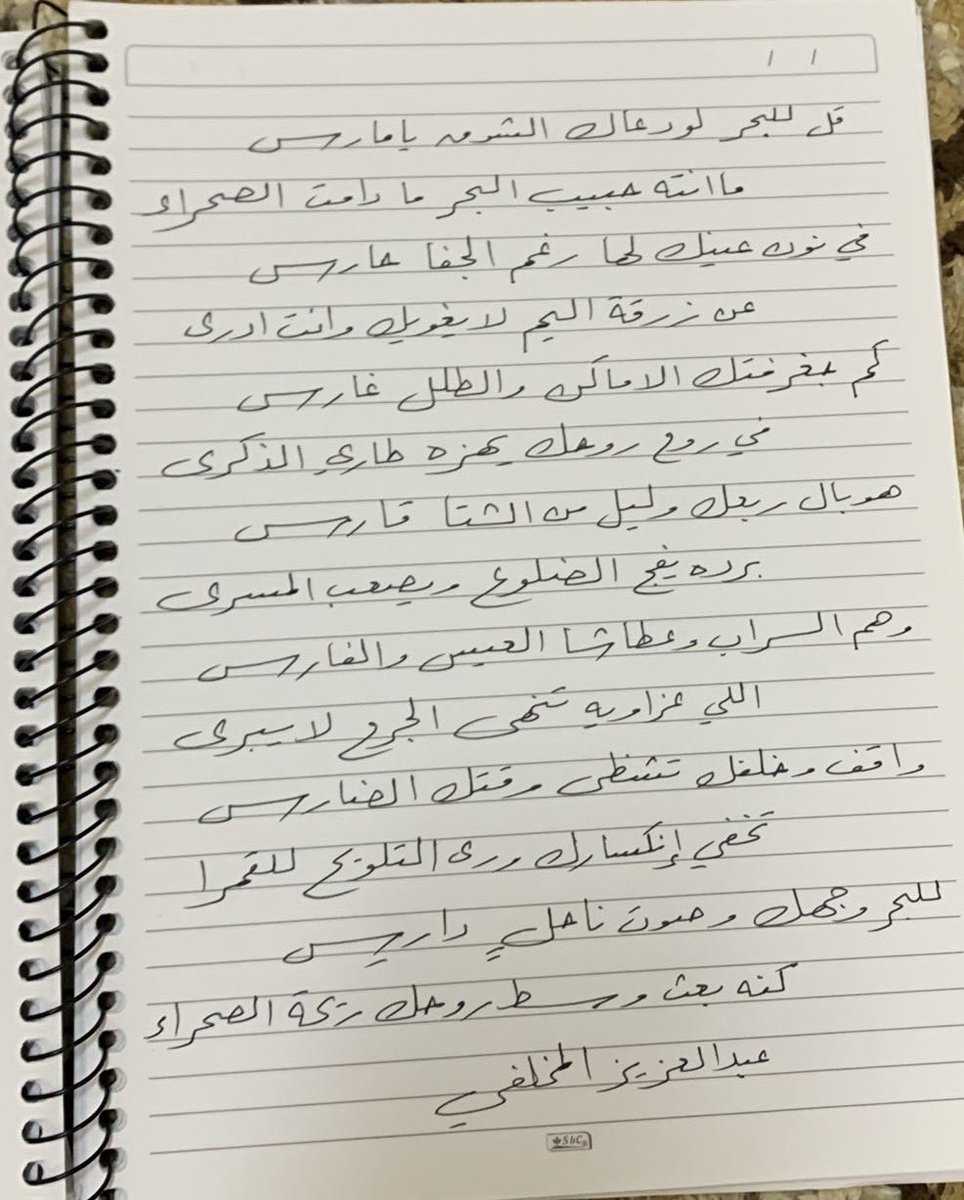 / /
قل للبحر لو دعاك الشوق يا فارس
ما انته حبيب البحر ما دامت الصحراء
في نون عينك لها رغم الجفا حارس
عن زرقة اليم لا يغويك وانت ادرى
كم جغرفتك الاماكن والطلل غارس
في روع روعك يهزه طاري الذكرى
هوبال ربعك وليل من الشتا قارس
برده يفج الضلوع ويصعب المسرى
وهم السراب وعطاشا العيس والفارس
اللي عزاويه تنهى الجرح لا يبرى
واقف وخلفك تشظى وقتك الضارس
تخفي إنكسارك ورى التلويح للقمرا
للبحر وجهك وصوت ناحلٍ دارس
كنه بعث وسط روحك ريحة الصحراء
عبدالعزيز المخلفي
SbC